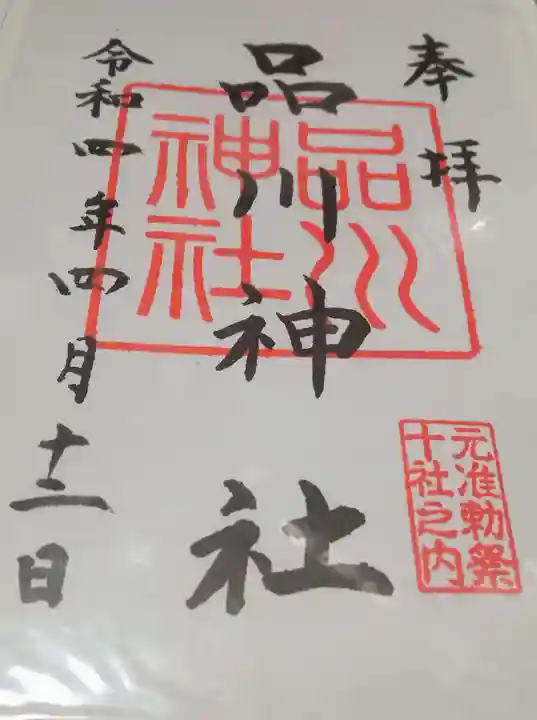 奉拝
品川神社
品川
神社
元准勅祭
十社之内
令和四年四月十二日